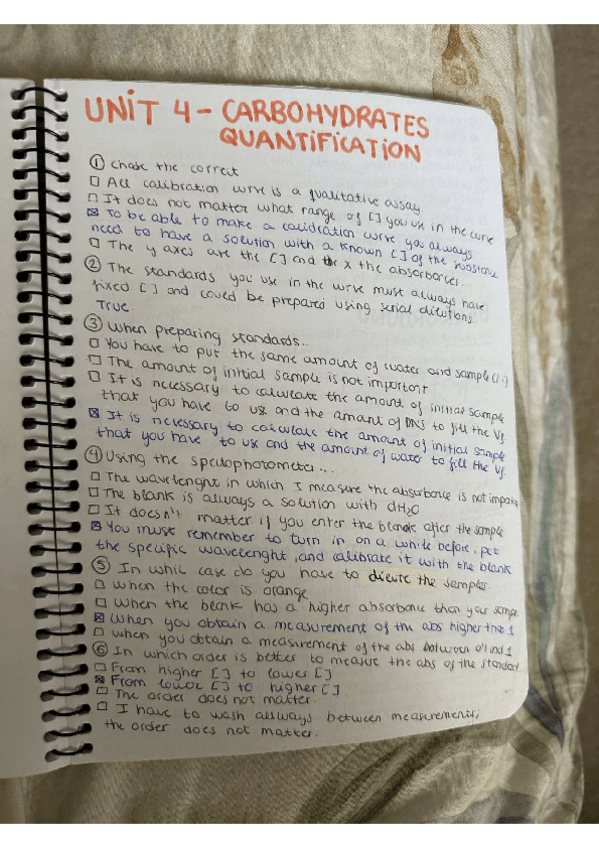 UNIT 4 - CARBOHYDRATES
QUANTIFICATION
① Chose the correct
☐ All calibration curve is a qualitative assay.
☐ It does not matter what range of [] you use in the curve
☒ To be able to make a calibration curve you always
need to have a solution with a known [] of the substance
☐ The y axes are the [] and the x the absorbances.
② The standards you use in the curve must always have
fixed [] and could be prepared using serial dilutions.
True.
③ When preparing standards...
☐ You have to put the same amount of water and sample (1:1)
☐ The amount of initial sample is not important
☐ It is necessary to calculate the amount of initial sample
that you have to use and the amount of DNS to fill the Vf
☒ It is necessary to calculate the amount of initial sample
that you have to use and the amount of water to fill the Vf.
④ Using the spectophotometer...
☐ The wavelenght in which I measure the absorbance is not important
☐ The blank is always a solution with dH2O
☐ It doesn't matter if you enter the blank after the sample
☒ You must remember to turn in on a while before, put
the specific wavelenght, and calibrate it with the blank
⑤ In whic case do you have to dilute the samples
☐ When the color is orange
☐ When the blank has a higher absorbance than your sample
☒ When you obtain a measurement of the abs higher than 1
☐ When you obtain a measurement of the abs between 0'1 and 1
⑥ In which order is better to measure the abs of the standard.
☐ From higher [] to lower []
☒ From lower [] to higher []
☐ The order does not matter.
☐ I have to wash allways between measurements,
the order does not matter.